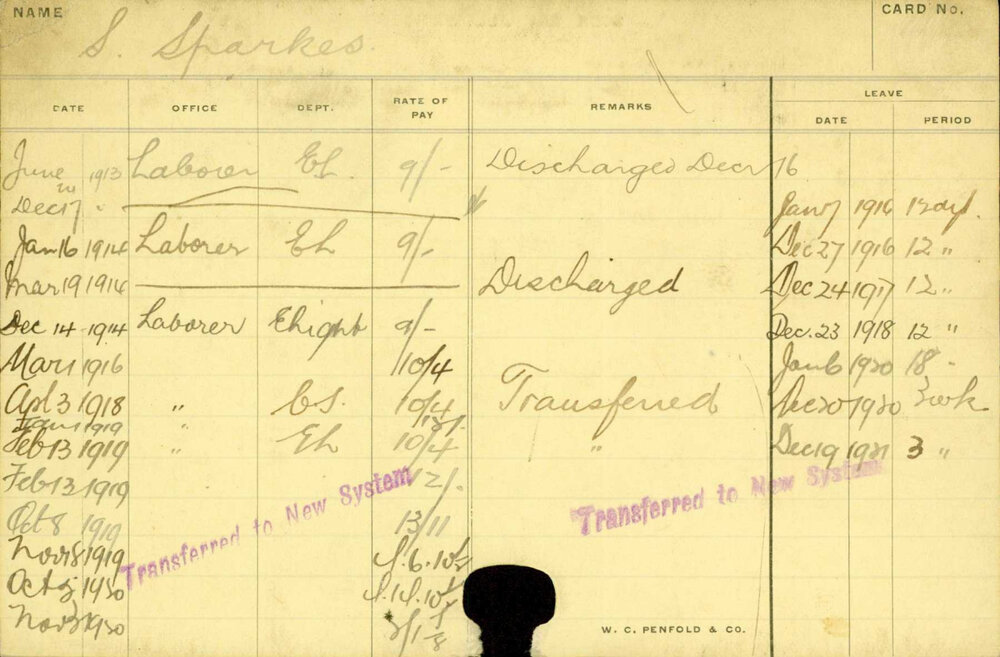 NAME S. Sparkes. CARD No.
DATE OFFICE DEPT. RATE OF PAY REMARKS LEAVE
DATE PERIOD
June 1913 Laborer EL. 9/- Discharged Decr 16
Dec 17 "
Jan 7 1916 12 dys.
Jan 16 1914 Laborer EL 9/- Dec 27 1916 12 "
Mar 19 1914 Discharged Dec 24 1917 12 "
Dec 14 - 1914 Laborer Elight 9/- Dec. 23 1918 12 "
Mar 1 1916 10/4 Jan 6 1920 18 -
Apl 3 1918 " C.S. 10/4 Transferred Dec 20 1920 3 wk
Jan 1 1919 "
Feb 13 1919 EL 10/4 " Dec 19 1921 3 "
Feb 13 1919 12/.
Oct 8 1919 13/11
Nov 8 1919
Oct 1920
Nov 1920
Transferred to New System
Transferred to New System
W. C. PENFOLD & CO.